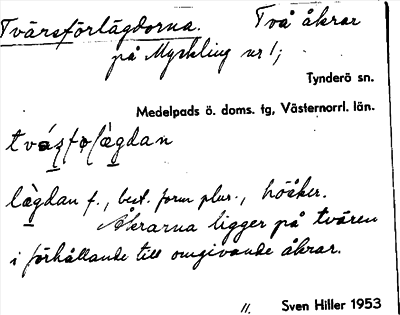 Tvärsförlägdorna. Två åkrar
på Myckling nr 1;
Tynderö sn.
Medelpads ö. doms. tg, Västernorrl. län.
lägdan f., best. form plur.,
Åkrarna ligger på tvären
i förhållande till omgivande åkrar.
11. Sven Hiller 1953